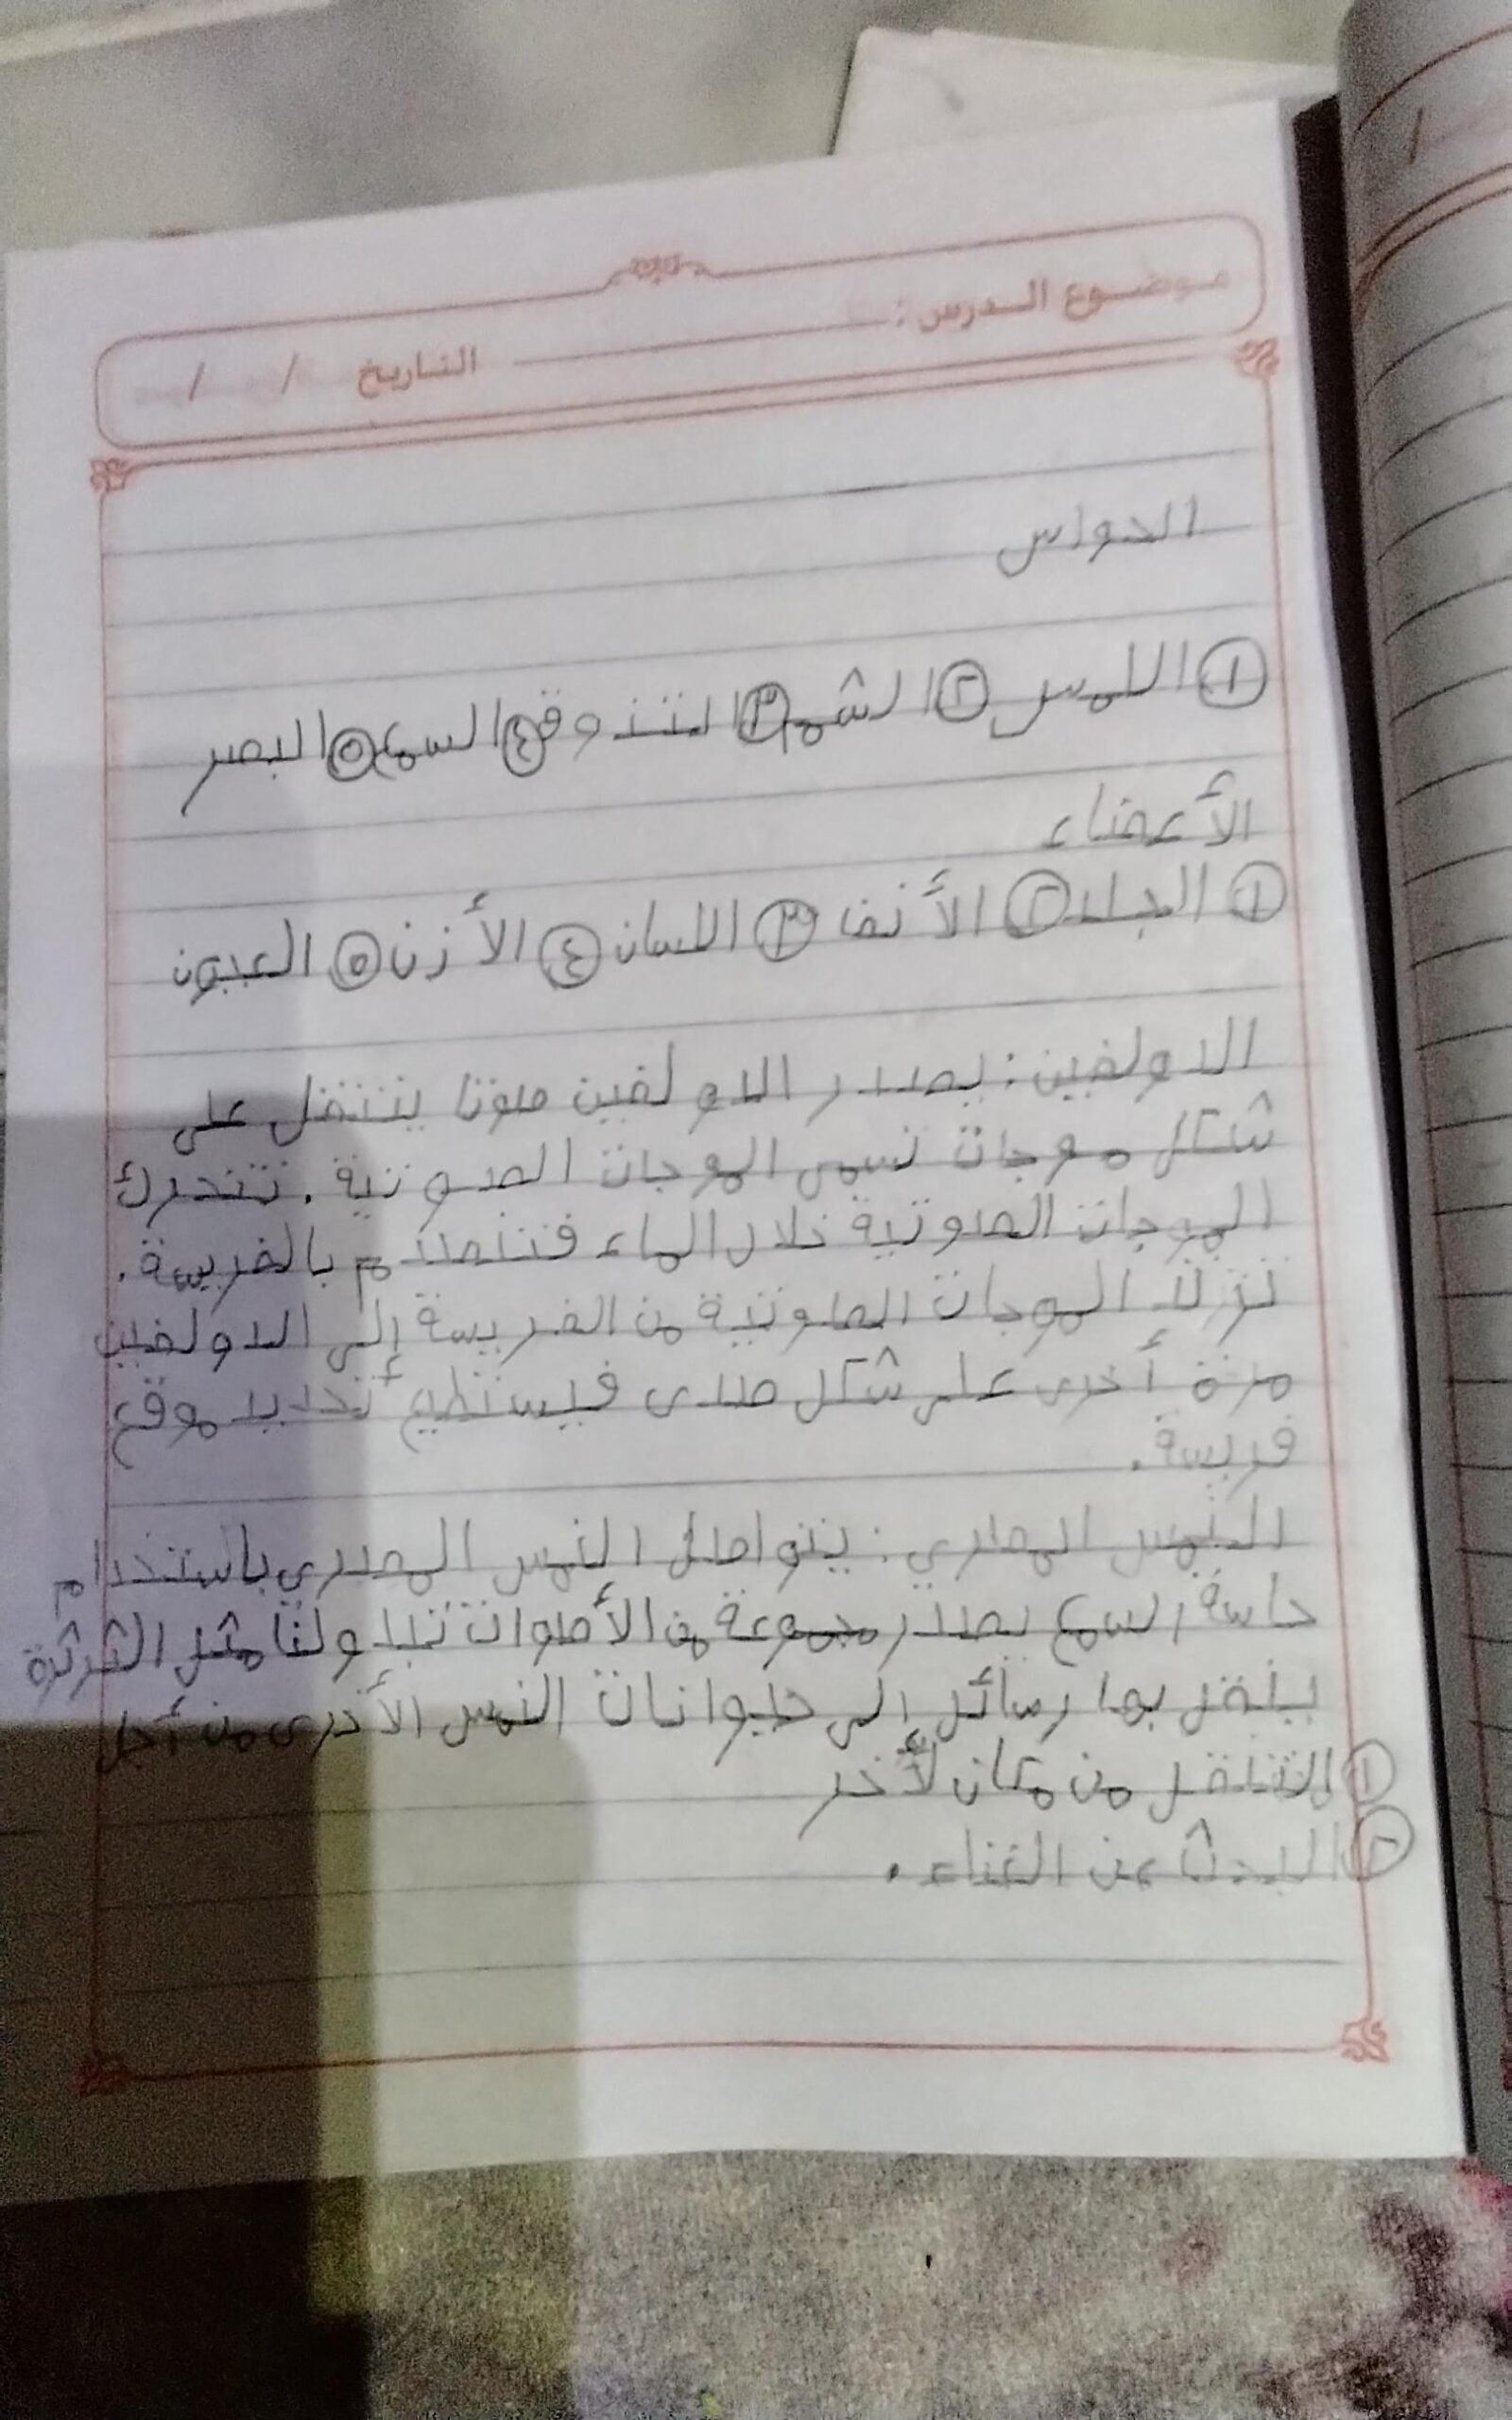 موضوع الدرس:
التاريخ / /
الحواس
١ اللمس ٢ الشم ٣ التذوق ٤ السمع ٥ البصر
الأعضاء
١ الجلد ٢ الأنف ٣ اللسان ٤ الأزن ٥ العيون
الدولفين: يصدر الدولفين صوتا ينتقل على
شكل موجات تسمى الموجات الصوتية. تتحرك
الموجات الصوتية خلال الماء فتتصتدم بالفريسة.
ترتد الموجات الصوتية من الفريسة إلى الدولفين
مرة أخرى على شكل صدى فيستطيع تحديد موقع
فريسة.
النمس المصري: يتواصل النمس المصري باستخدام
حاسة السمع يصدر مجموعة من الأصوات مثل الثرثرة
ينقل بها رسائل الى حيوانات النمس الأخرى من أجل
١ التنقل من مكان لأخر
٢ البحث عن الغذاء.